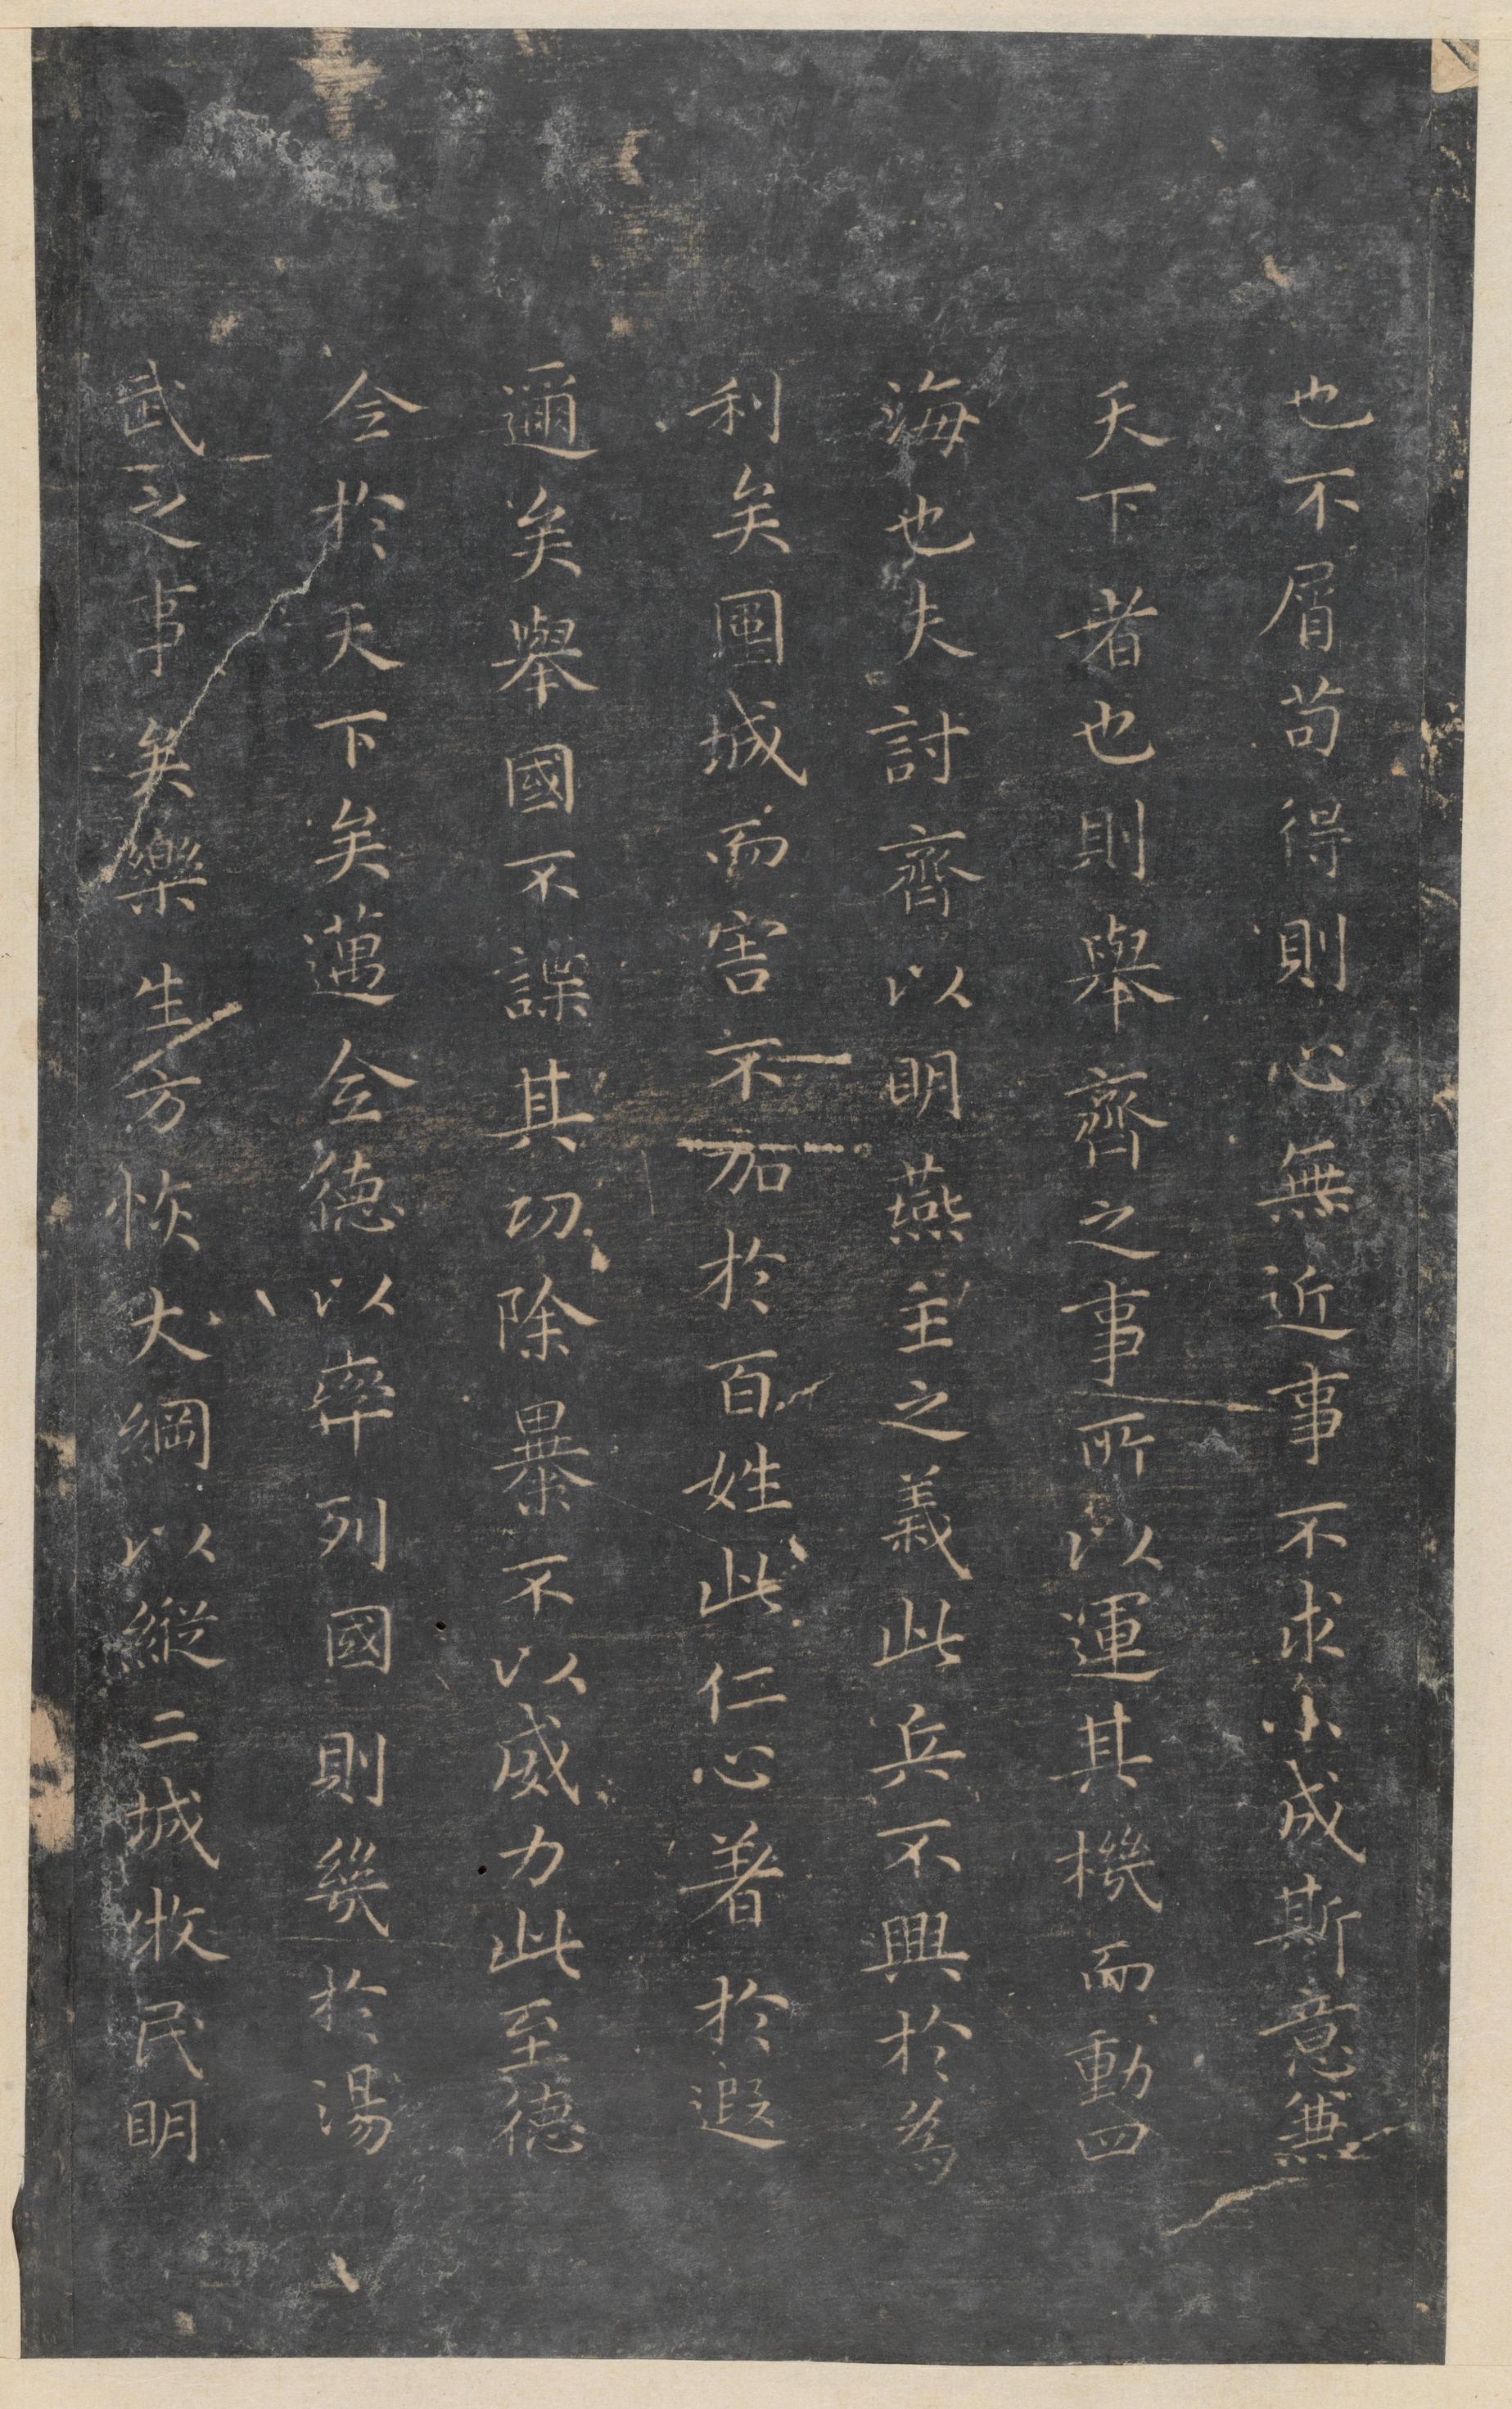 也不屑苟得則心無近事不求小成斯意兼
天下者也則舉齊之事所以運其機而動四
海也夫討齊以明燕主之義此兵不興於為
利矣圍城而害不加於百姓此仁心著於遐
邇矣舉國不謀其功除暴不以威力此至德
令於天下矣邁令德以率列國則幾於湯
武之事矣樂生方恢大綱以縱二城牧民明